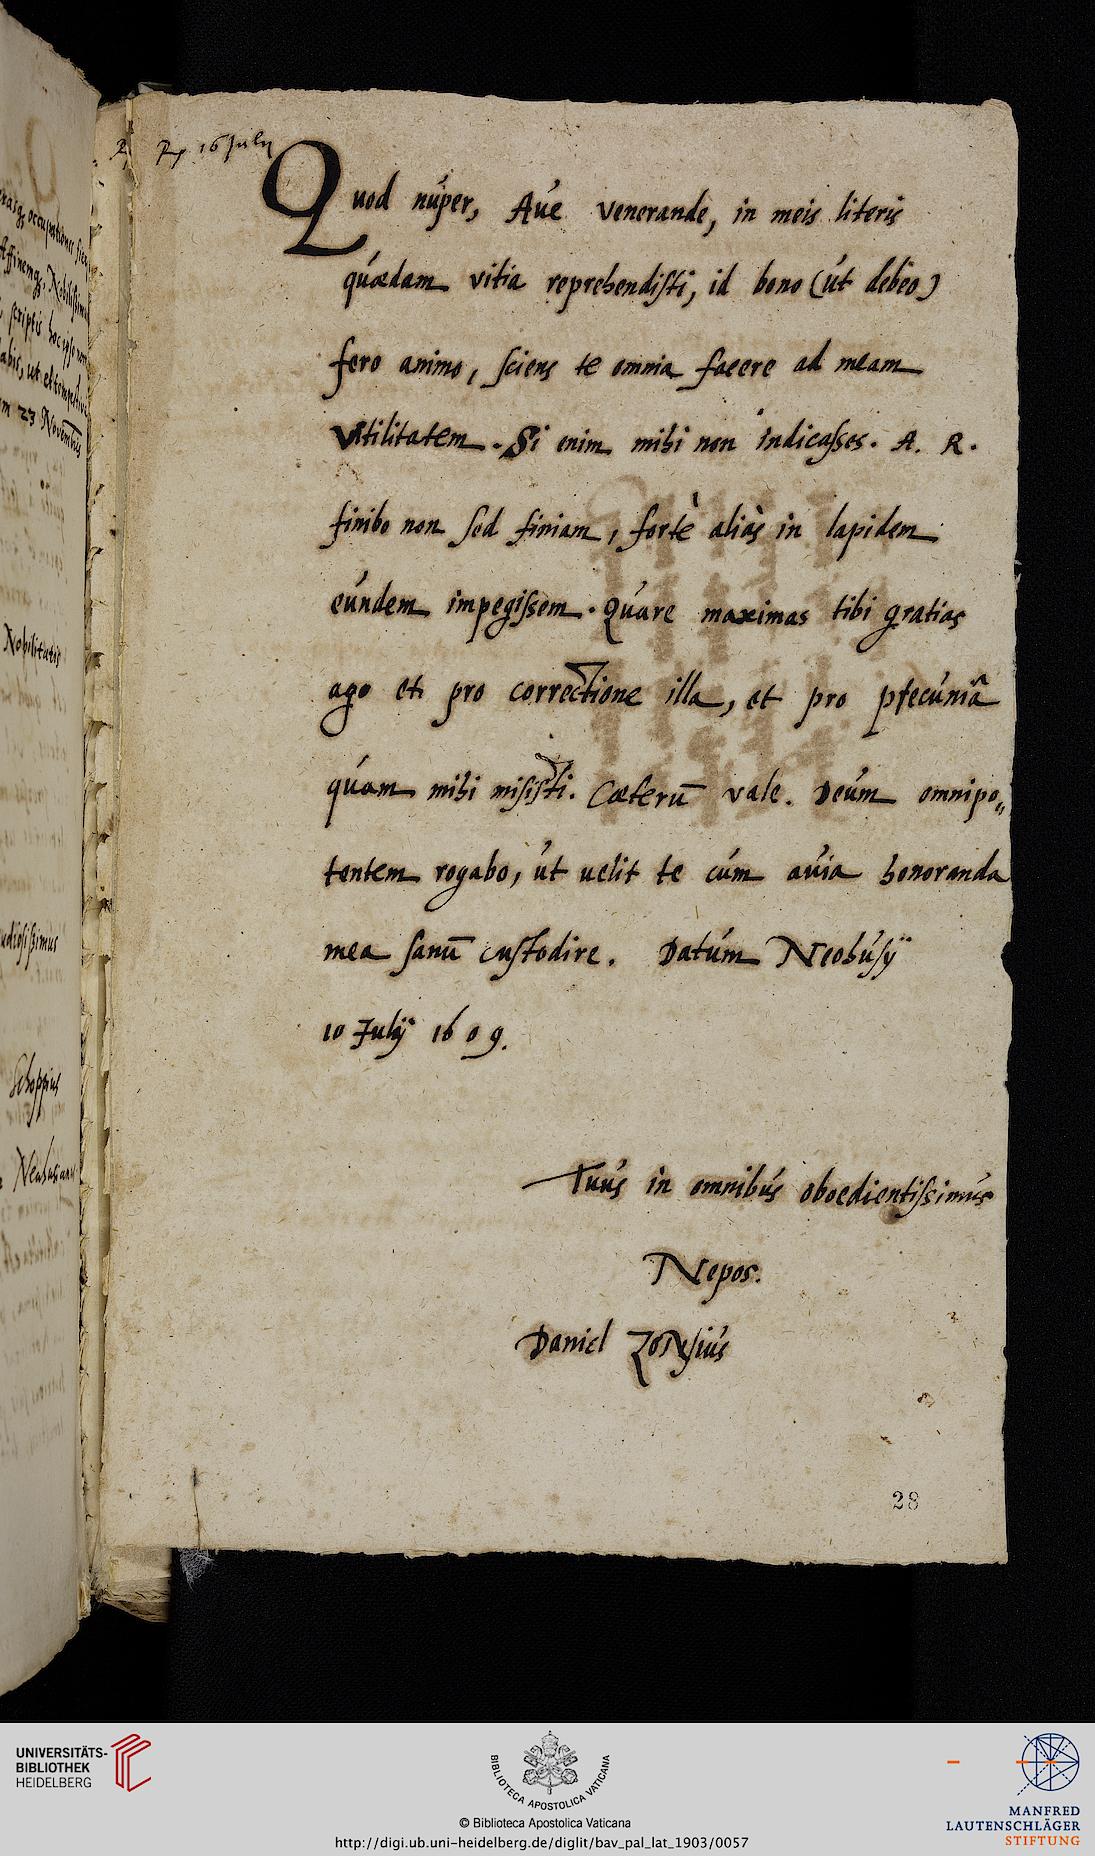 16 July
Quod nuper, Aue venerande, in meis literis
quædam vitia reprehendisti, id bono (ut debeo)
fero animo, sciens te omnia facere ad meam
vtilitatem. Si enim mihi non indicasses. A. R.
finibo non sed finiam, fortè aliàs in lapidem
eundem impegissem. Quare maximas tibi gratias
ago et pro correctione illa, et pro pecuniâ
quam mihi misisti. Cæterū vale. Deum omnipo„
tentem rogabo, ut uelit te cum auia honoranda
mea sanū custodire. Datum Neohusÿ
10 Julÿ 1609.
Tuus in omnibus oboedientissimus
Nepos.
Daniel
28
occupationes
Affinemq, Nobilissimū
scriptis hoc ipso
abis, ut
23 Novembris
Nobilitatis
Schoppius
UNIVERSITÄTS-
BIBLIOTHEK
HEIDELBERG
BIBLIOTECA APOSTOLICA VATICANA
© Biblioteca Apostolica Vaticana
http://digi.ub.uni-heidelberg.de/diglit/bav_pal_lat_1903/0057
MANFRED
LAUTENSCHLÄGER
STIFTUNG